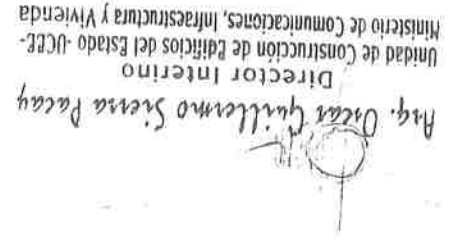 Arq. Oscar Guillermo Sierra Pacay
Director Interino
Unidad de Construcción de Edificios del Estado -UCEE-
Ministerio de Comunicaciones, Infraestructura y Vivienda